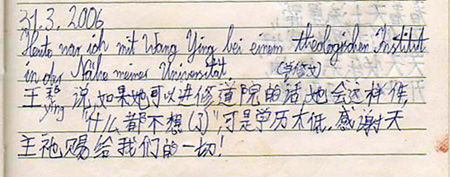 31.3.2006
Heute war ich mit Wang Ying bei einem theologischen Institut
in der Nähe meiner Universität
王 说,如果她可以进修道院的话,她会这样作,
ying
"什么都不想(了)",可是学历太低.感谢天
主祂赐给我们的一切!